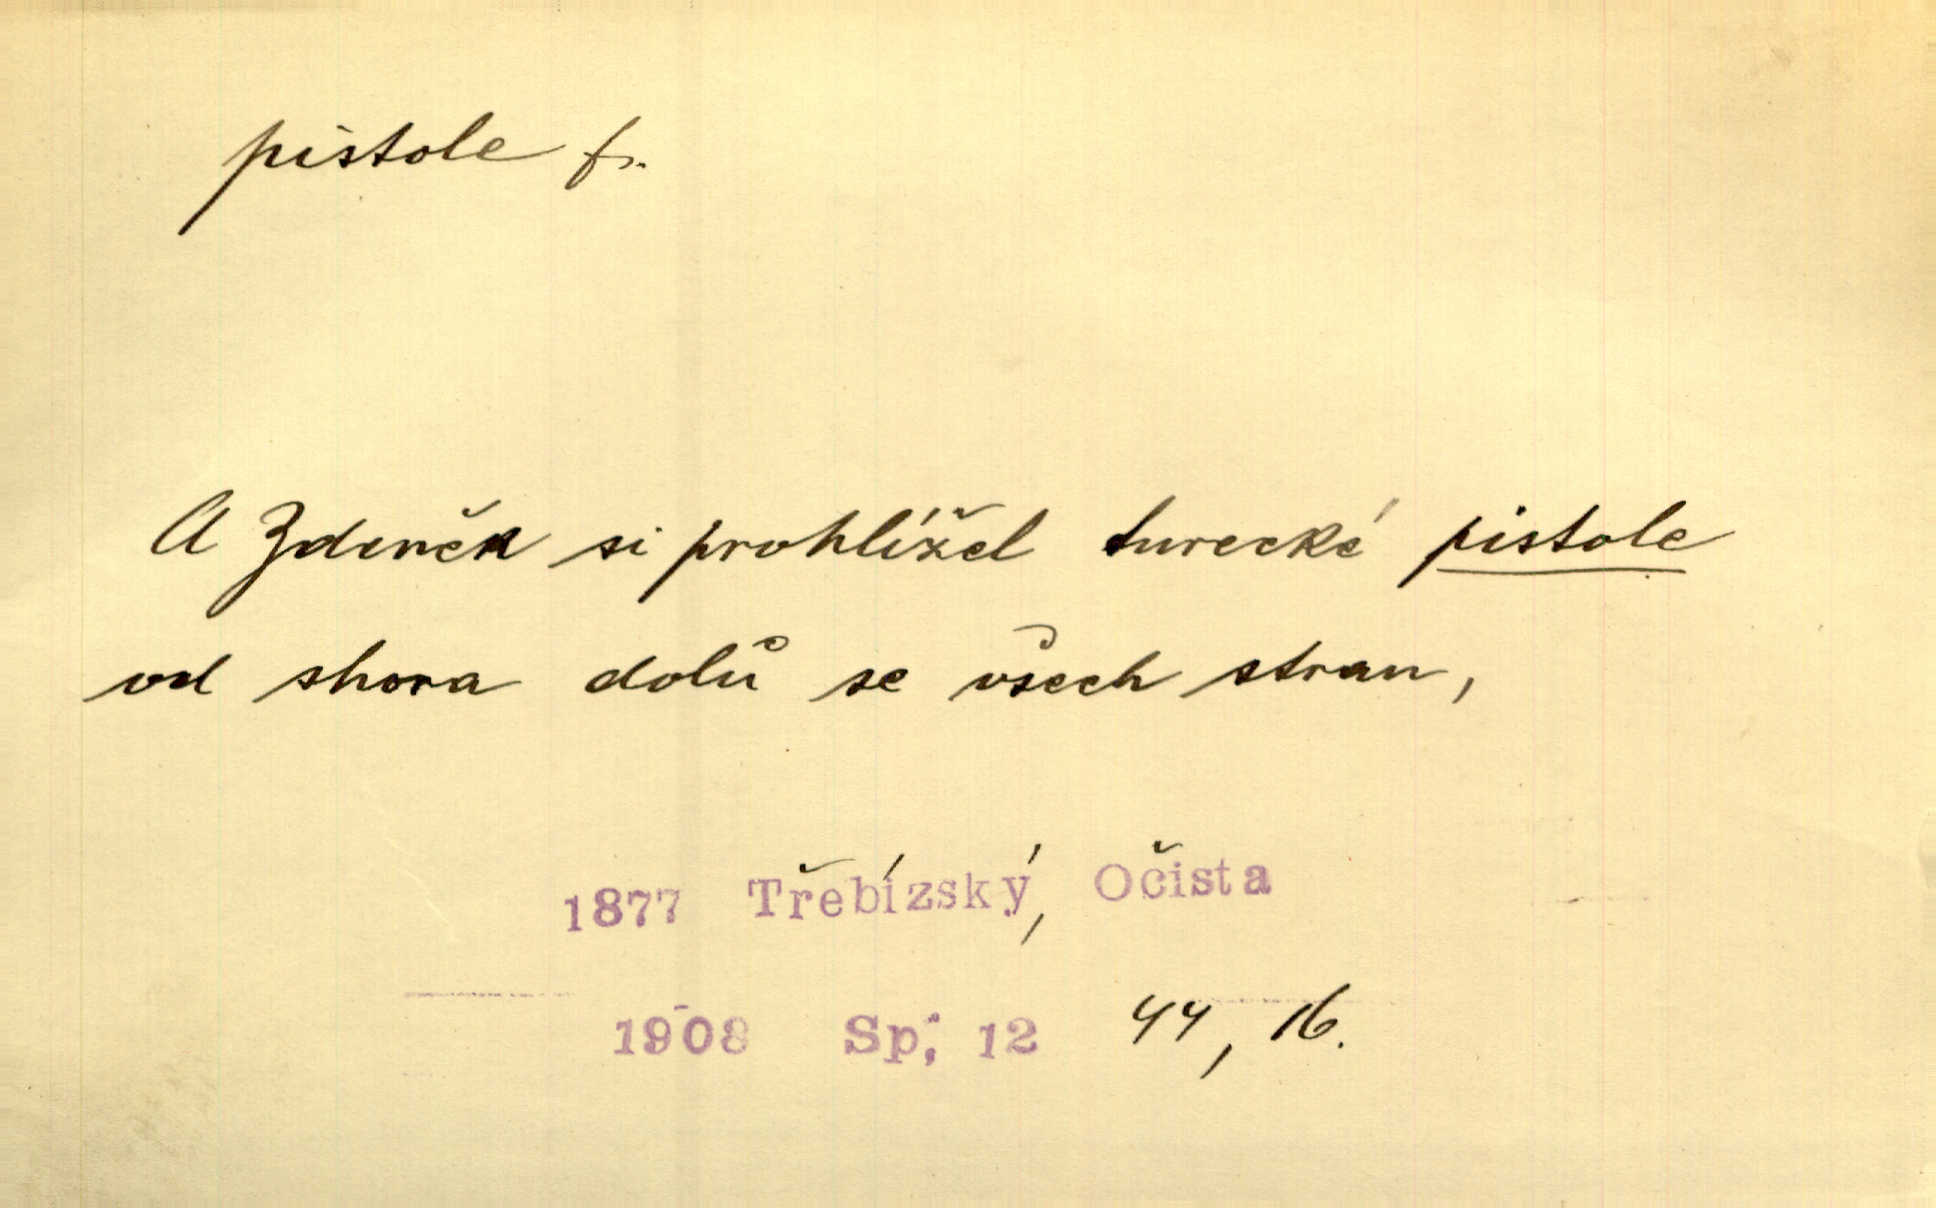 pistole f.
A Zdeněk si prohlížel turecké pistole
od shora dolů se všech stran,
1877 Třebízský, Očista
1908 Sp. 12 44, 16.